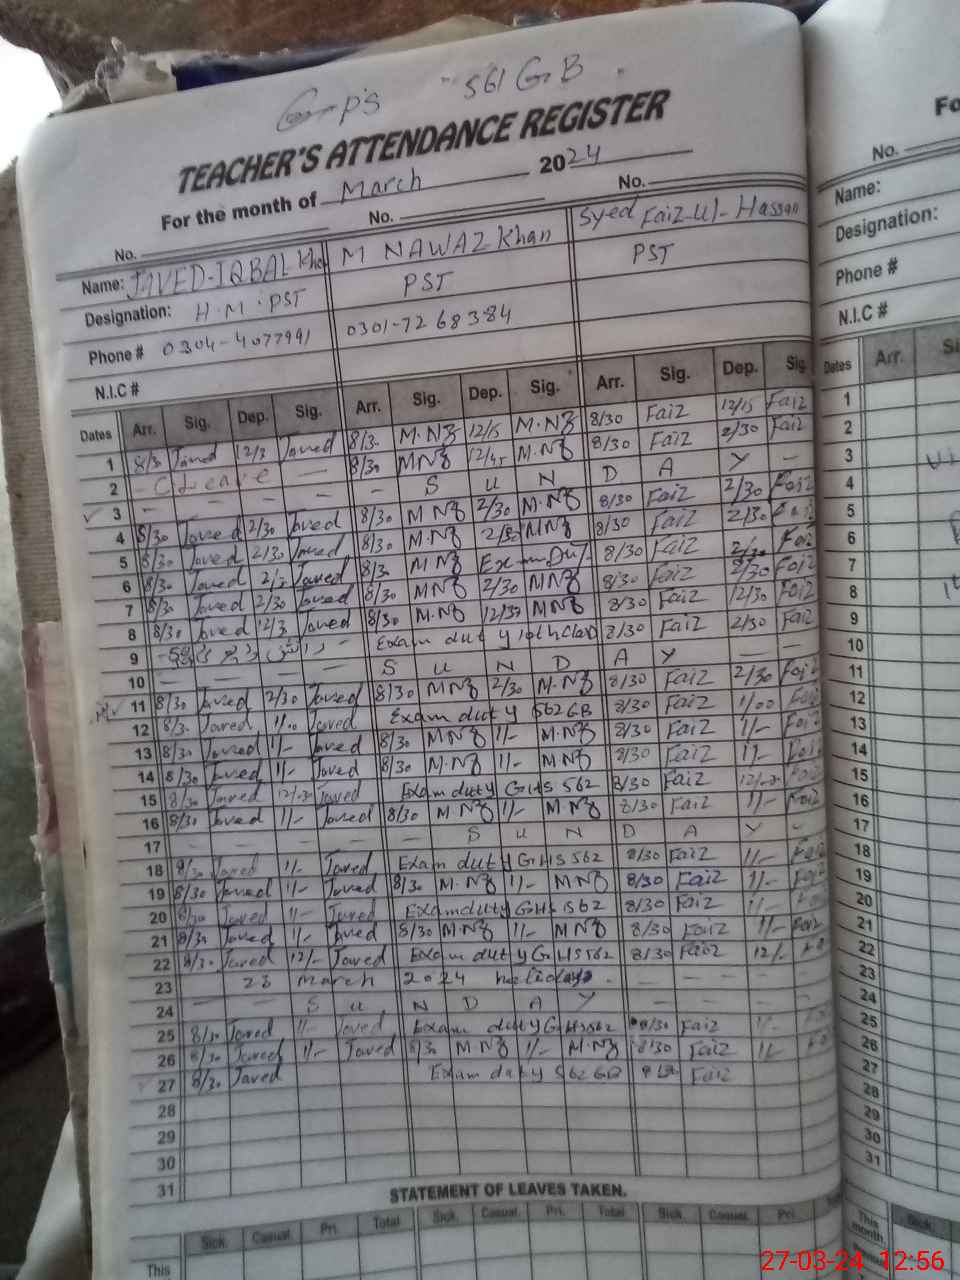 GPS 561 GB
TEACHER'S ATTENDANCE REGISTER
For the month of March 2024
No. No. No.
Name: JAVED-IQBAL Khan M NAWAZ Khan Syed Faiz-Ul-Hassan
Designation: H.M. PST PST PST
Phone # 0304-4077991 0301-7268384
N.I.C #
Dates Arr. Sig. Dep. Sig. Arr. Sig. Dep. Sig. Arr. Sig. Dep. Sig.
1 8/30 Javed 12/3 Javed 8/30 M.NZ 12/15 M.NZ 8/30 Faiz 12/15 Faiz
2 C Leave 8/30 MNZ 12/45 M.NZ 8/30 Faiz 2/30 Faiz
3 S U N D A Y
4 8/30 Javed 2/30 Javed 8/30 M NZ 2/30 M.NZ 8/30 Faiz 2/30 Faiz
5 8/30 Javed 2/30 Javed 8/30 M.NZ 2/30 MNZ 8/30 Faiz 2/30 Faiz
6 8/30 Javed 2/3 Javed 8/30 M NZ Exam Duty 8/30 Faiz 2/30 Faiz
7 8/30 Javed 2/30 Javed 8/30 MNZ 2/30 MNZ 8/30 Faiz 2/30 Faiz
8 8/30 Javed 12/3 Javed 8/30 M.NZ 12/30 MNZ 8/30 Faiz 12/30 Faiz
9 Exam duty 10th Class 8/30 Faiz 2/30 Faiz
10 S U N D A Y
11 8/30 Javed 2/30 Javed 8/30 MNZ 2/30 M.NZ 8/30 Faiz 2/30 Faiz
12 8/30 Javed 1/00 Javed Exam duty 562 GB 8/30 Faiz 1/00 Faiz
13 8/30 Javed 1/- Javed 8/30 MNZ 1/- M.NZ 8/30 Faiz 1/- Faiz
14 8/30 Javed 1/- Javed 8/30 M.NZ 1/- MNZ 8/30 Faiz 1/- Faiz
15 8/30 Javed Javed Exam duty GHS 562 8/30 Faiz Faiz
16 8/30 Javed 1/- Javed 8/30 M.NZ 1/- M.NZ 8/30 Faiz 1/- Faiz
17 S U N D A Y
18 8/30 Javed 1/- Javed Exam duty GHS 562 8/30 Faiz 1/- Faiz
19 8/30 Javed 1/- Javed 8/30 M.NZ 1/- MNZ 8/30 Faiz 1/- Faiz
20 8/30 Javed 1/- Javed Exam duty GHS 562 8/30 Faiz 1/- Faiz
21 8/30 Javed 1/- Javed 8/30 M.NZ 1/- MNZ 8/30 Faiz 1/- Faiz
22 8/30 Javed 12/- Javed Exam duty GHS 562 8/30 Faiz 12/- Faiz
23 23 March 2024 holiday
24 S U N D A Y
25 8/30 Javed 1/- Javed Exam duty GHS 562 8/30 Faiz 1/-
26 8/30 Javed 1/- Javed 8/30 M NZ 1/- M.NZ 8/30 Faiz 1/-
27 8/30 Javed Exam duty 562 GB Faiz
28
29
30
31
STATEMENT OF LEAVES TAKEN.
Sick. Casual. Pri. Total Sick. Casual. Pri. Total Sick. Casual. Pri.
This
Fo
No.
Name:
Designation:
Phone #
N.I.C #
Dates Arr.
1
2
3
4
5
6
7
8
9
10
11
12
13
14
15
16
17
18
19
20
21
22
23
24
25
26
27
28
29
30
31
This month. Sick.
27-03-24 12:56